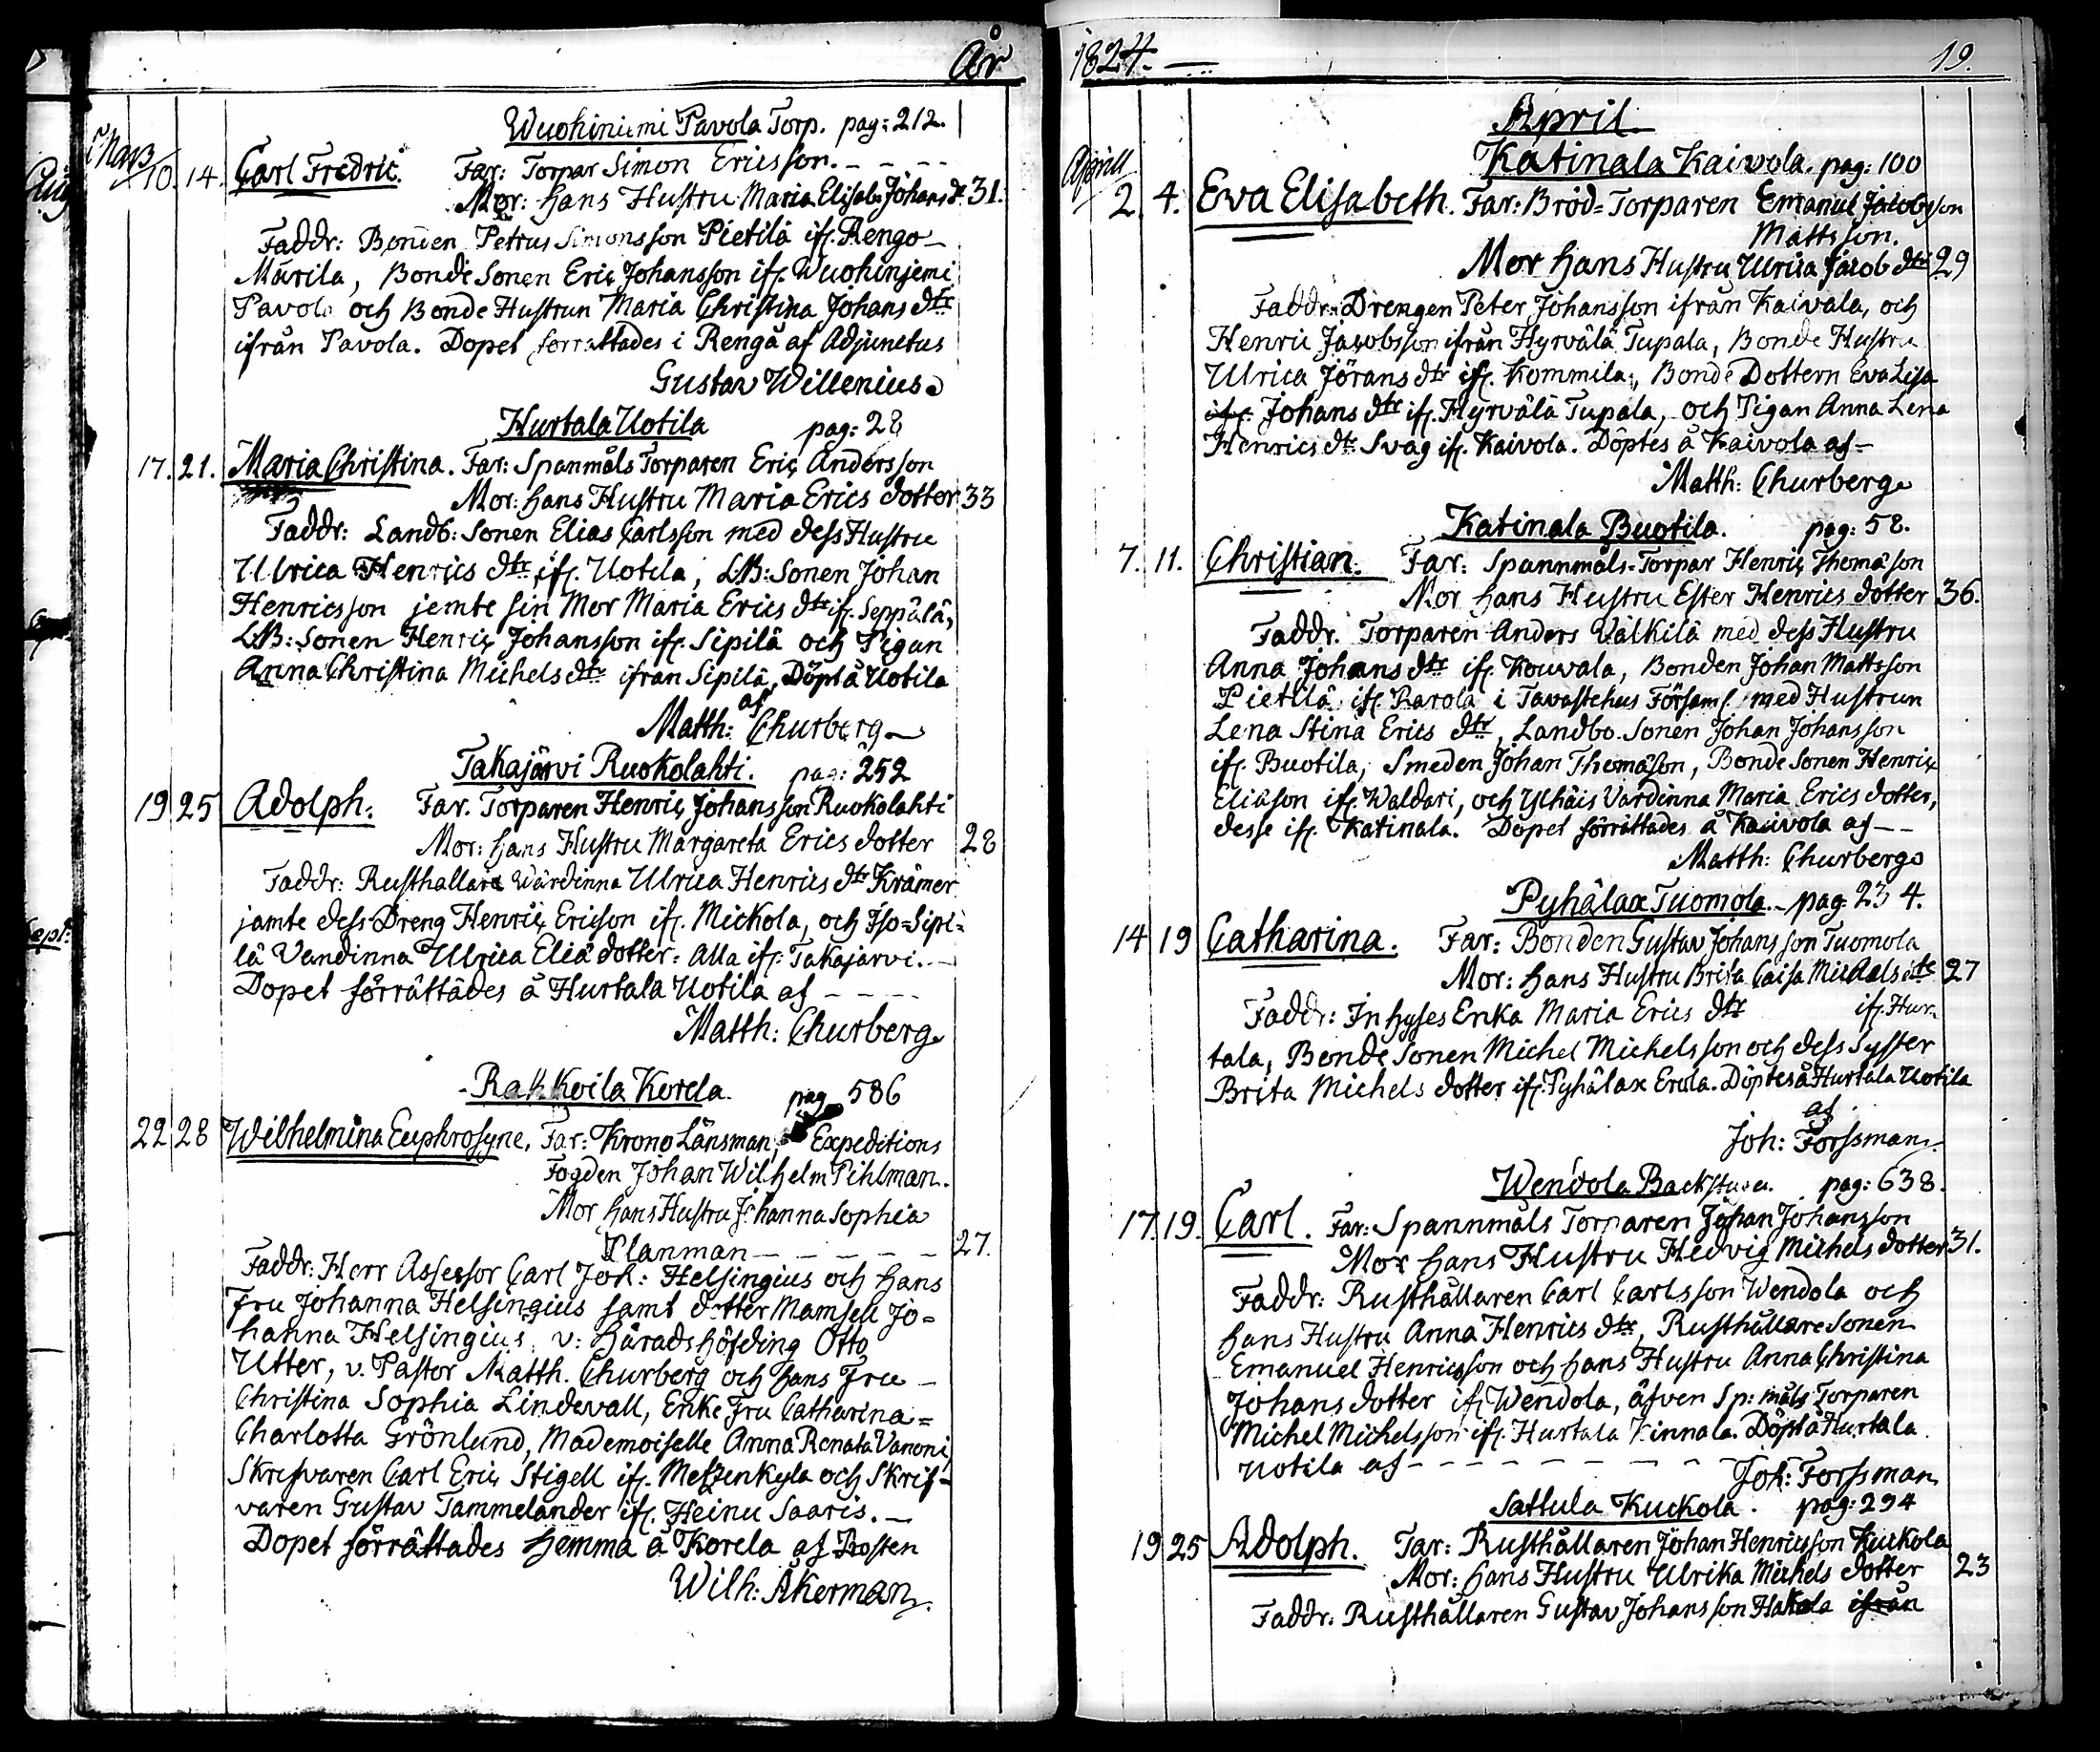 År
Wuohiniemi Pavola Torp. pag: 212.
Mars
10. 14. Carl Fredric. Far: Torpar Simon Ericsson. - - --
Mor: hans Hustru Maria Elisab: Johans dr 31.
Faddr: Bonden Petrus Simonsson Pietilä ifr. Rengo
Mårila, Bonde Sonen Eric Johansson ifr. Wuohinjemi
Pavola och Bonde Hustrun Maria Christina Johans dtr
ifrån Pavola. Dopet förrättades i Rengå af Adjunctus
Gustav Willenius
Hurtala Uotila pag: 28
17. 21. Maria Christina. Far: Spanmåls Torparen Eric Andersson
Mor: hans Hustru Maria Erics dotter 33
Faddr: Landb: Sonen Elias Carlsson med dess Hustru
Ulrica Henrics dtr ifr. Uotila, LB: Sonen Johan
Henricsson jemte sin Mor Maria Erics dtr ifr. Seppälä,
LB: Sonen Henric Johansson ifr. Sipilä och Pigan
Anna Christina Michels dtr ifrån Sipilä, Döpt å Uotila
af
Matth: Churberg
Takajärvi Ruokolahti. pag: 252
19 25 Adolph: Far. Torparen Henric Johansson Ruokolahti
Mor: hans Hustru Margareta Erics dotter 28
Faddr: Rusthallare Wärdinna Ulrica Henrics dtr Krämer
jamte dess Dreng Henric Ericson ifr. Mickola, och Iso=Sipi=
lä Vandinna Ulrica Eliä dotter: Alla ifr. Takajärvi. -
Dopet förrättades å Hurtala Uotila af - - - -
Matth: Churberg
Rakkoila Korela. pag 586
22 28 Wilhelmina Euphrosyne, Far: Krono Länsman, Expeditions
Fogden Johan Wilhelm Pihlman.
Mor hans Hustru Johanna Sophia
Planman - - - - - 27.
Faddr: Herr Assessor Carl Joh: Helsingius och hans
Fru Johanna Helsingius samt dotter Mamsell Jo=
hanna Helsingius, v: Häradshöfding Otto
Utter, v. Pastor Matth. Churberg och hans Fru -
Christina Sophia Lindevall, Enke Fru Catharina=
Charlotta Grönlund, Mademoiselle Anna Renata Vanoni,
Skrifvaren Carl Eric Stigell ifr. Metzenkyla och Skrif-
varen Gustav Tammelander ifr. Heinu Saaris. -
Dopet förrättades hemma å Korela af Prosten
Wilh: Åkerman
1824. 19.
April
Katinala Kaivola. pag: 100
Aprill
2. 4. Eva Elisabeth. Far: Bröd=Torparen Emanuel Jacobsson
Mattsson.
Mor hans Hustru Ulrica Jacob dtr 29
Faddr: Drengen Peter Johansson ifrån Kaivala, och
Henric Jacobsson ifrån Hyrvälä Tupala, Bonde Hustru
Ulrica Jörans dtr ifr. Kommila, Bonde Dottern Eva Lisa
ifr. Johans dtr ifr. Hyrvälä Tupala, och Pigan Anna Lena
Henrics dtr Svag ifr. Kaivola. Döptes å Kaivola af -
Matth: Churberg
Katinala Buotila. pag: 58.
7. 11. Christian. Far: Spannmåls-Torpar Henric Thomäson
Mor hans Hustru Ester Henrics dotter 36.
Faddr. Torparen Anders Välkilä med dess Hustru
Anna Johans dtr ifr. Kouvala, Bonden Johan Mattsson
Pietilä ifr. Parola i Tavastehus Församl. med Hustrun
Lena Stina Erics dtr, Landbo. Sonen Johan Johansson
ifr. Buotila, Smeden Johan Thomäson, Bonde Sonen Henric
Eliäson ifr. Waldari, och Ylhäis Vardinna Maria Erics dotter,
desse ifr. Katinala. Dopet förrättades å Kaivola af - -
Matth: Churberg
Pyhälax Tuomola - pag 234.
14 19 Catharina. Far: Bonden Gustav Johansson Tuomola
Mor: hans Hustru Brita Caisa Michels dtr 27
Faddr: Inhyses Enka Maria Erics dtr ifr. Hur-
tala, Bonde Sonen Michel Michelsson och dess Syster
Brita Michels dotter ifr. Pyhälax Erola. Döptes å Hurtala Uotila
af
Joh: Forssman
Wendola Backstuga. pag: 638.
17. 19. Carl. Far: Spannmåls Torparen Johan Johansson
Mor hans Hustru Hedvig Michels dotter 31.
Faddr: Rusthållaren Carl Carlsson Wendola och
hans Hustru Anna Henrics dtr, Rusthållare Sonen
Emanuel Henricsson och hans Hustru Anna Christina
Johans dotter ifr. Wendola, äfven Sp: måls Torparen
Michel Michelsson ifr. Hurtala Kinnala. Döpt å Hurtala
Uotila af - - - - - - - -
Joh: Forssman
Sattula Kuckola. pag: 294
19 25 Adolph. Far: Rusthållaren Johan Henricsson Kuckola
Mor: hans Hustru Ulrika Michels dotter 23
Faddr: Rusthållaren Gustav Johansson Hakala ifrån